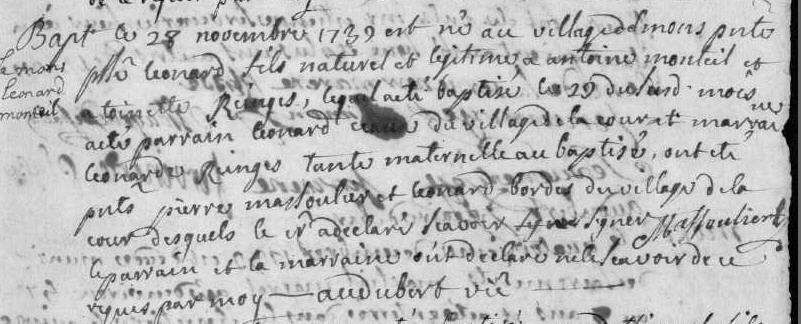 Bapt. Le 28 novembre 1739 est né au village de mons pnte
psse leonard fils naturel et legitime a antoine monteil et
le mons
Leonard
monteil
atoinette Ringes, lequel a eté baptisé le 29 dususd. mois
a eté parrain leonard du village de la cour et marrai ne
leonarde Ringes tante maternelle au baptisé, ont eté
pnts pierre massoulier et leonard bordes du village de la
cour desquels le 1r a declaré scavoir signer Massoulier
le parrain et la marraine ont declaré ne le scavoir de ce
requis par moy — audubert vic